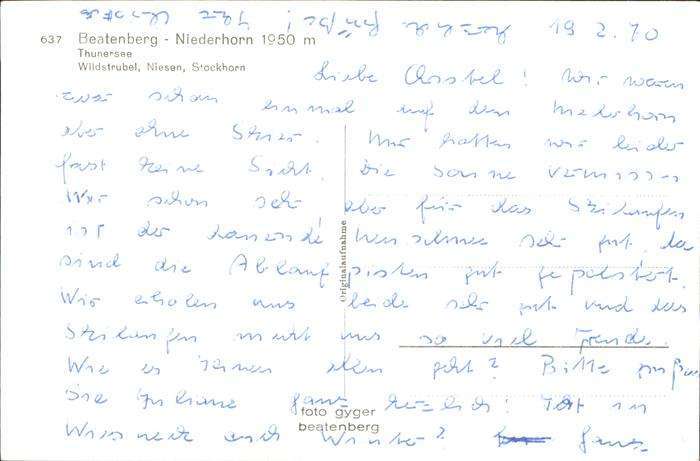 19 2.70
637 Beatenberg - Niederhorn 1950 m
Thunersee
Wildstrubel, Niesen, Stockhorn
Liebe ! Wir waren
zwar schon einmal auf dem Niederhorn
aber ohne Skier. Nur hatten wir leider
fast keine Sicht. Die Sonne vermissen
Wir schon sehr aber für das Skilaufen
ist der Neuschnee sehr gut, da
sind die Ablaufpisten gut gepolstert.
Wir erholen uns beide sehr gut und das
Skilaufen macht uns so viel Freude.
Wie es Ihnen allen geht? Bitte grüßen
Sie zuhause ganz herzlich! Ist in
auch Winter? Ganz
herzliche Grüße! Ihre
Originalaufnahme
foto gyger
beatenberg